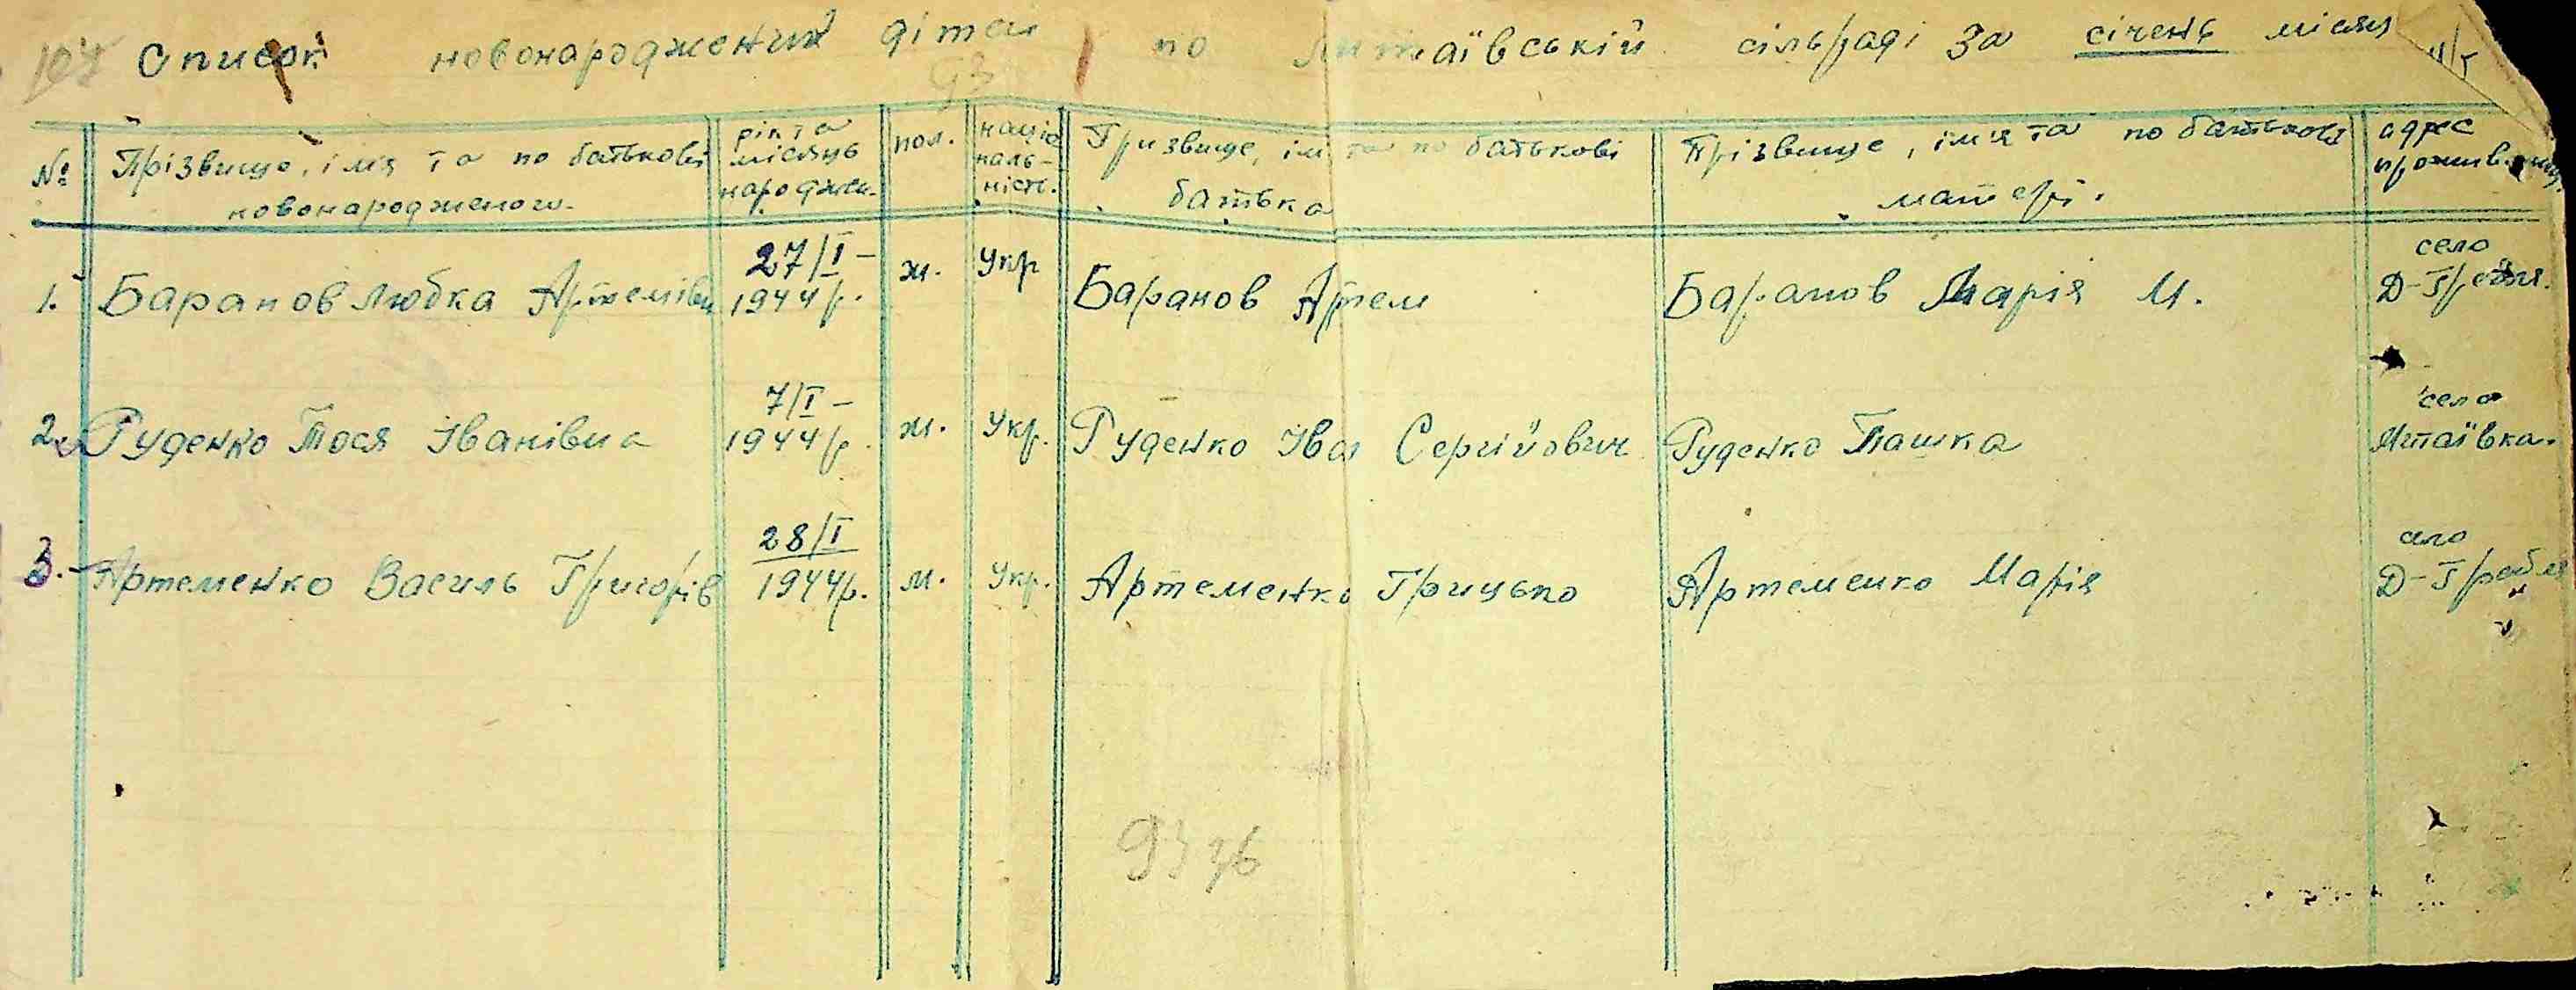 107 Список новонароджений дітей по Митаївській сільраді за січень місяць
93
№ Прізвище, імя та по батькові новонародженого. рік та місяць народжен. пол. націо наль- ність. Призвище, імя та по батькові батька Прізвище, ім'я та по батькові матері. адрес
1. Баранов Любка Артемівн 27/I - 1944 р. ж. Укр Баранов Артем Баранов Марія М. село Д-Гребля.
2. Руденко Тося Іванівна 7/I - 1944 р. ж. Укр. Руденко Іван Сергійович Руденко Пашка село Митаївка.
3. Артеменко Василь Григорів 28/I 1944 р. м. Укр. Артеменко Грицько Артеменко Марія село Д-Гребля